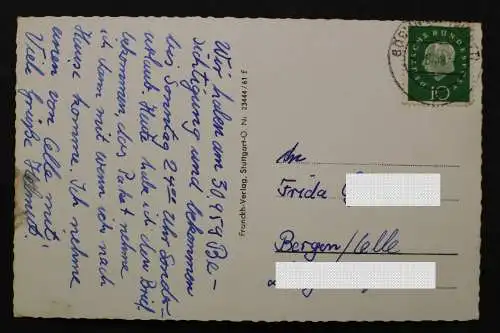 Wir haben am 30.9.59 Be-
sichtigung und bekommen
bis Sonntag 24°° Uhr Sonder-
urlaub. Heute habe ich dein Brief
bekommen, das Paket nehme
ich dann mit wenn ich nach
Hause komme. Ich nehme
einen von Celle mit.
Viele Grüße Helmut.
Franckh-Verlag, Stuttgart-O. Nr. 23444/61 F
DEUTSCHE BUNDESPOST
10
An
Frida
Bergen/Celle